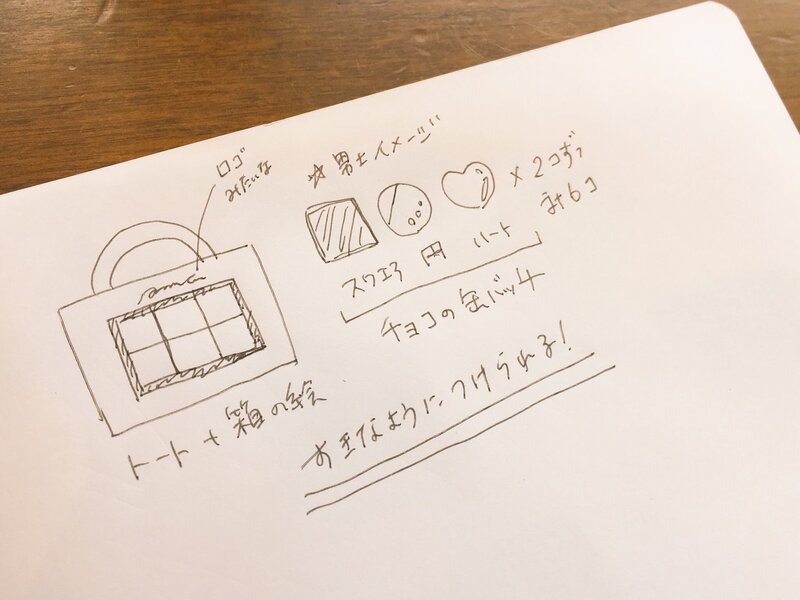 ロゴ
みたいな
☆男士イメージ
×2コずつ
計6コ
スクエア 円 ハート
チョコの缶バッチ
トート+箱の絵
お好きなようにつけられる!